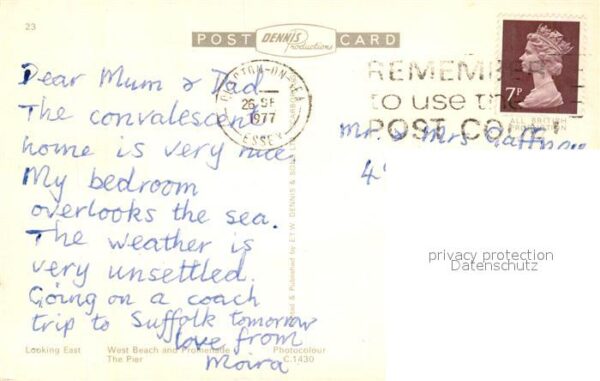 23
POST Dennis Productions CARD
CLACTON-ON-SEA
26 SE
1977
ESSEX
REMEMBER
to use the
POST CODE
7P
Dear Mum & Dad,
The convalescent
home is very nice
My bedroom
overlooks the sea.
The weather is
very unsettled.
Going on a coach
trip to Suffolk tomorrow
love from
Moira
Mr. & Mrs
4
ALL BRITISH
PRODUCTION
& Published by E.T.W. DENNIS & SONS
privacy protection
Datenschutz
Looking East
West Beach and Promenade
The Pier
Photocolour
C.1430